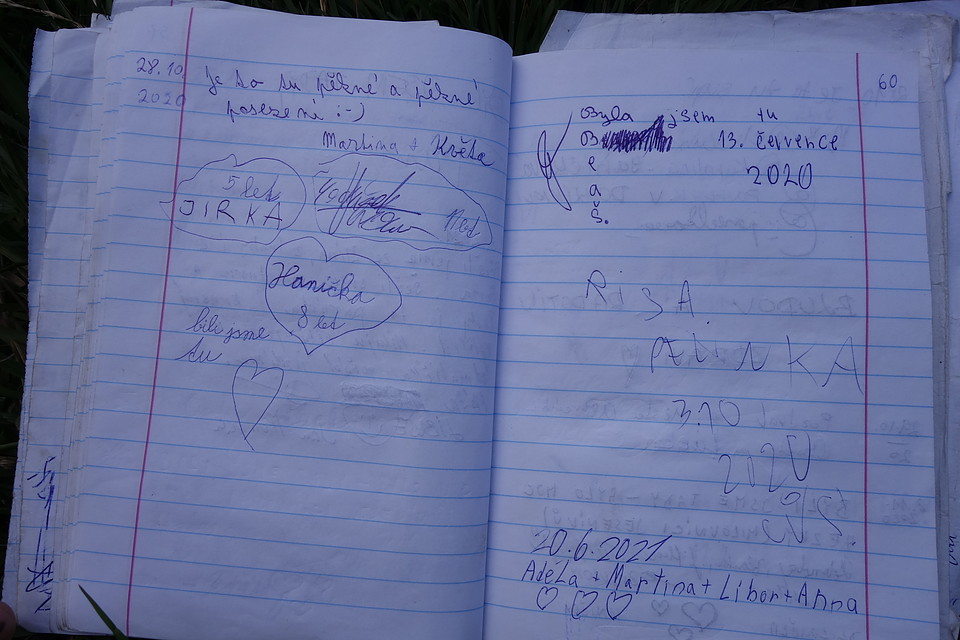 28.10
2020
Je to tu pěkné a pěkné
posezení :-)
Martina + Květa
5 let
JIRKA
11 let
Hanička
8 let
bili jsme
tu
60
Byla jsem tu
13. července
e
2020
a
š.
20.6.2021
Adéla + Martina + Libor + Anna
RiSA.
3.10
2020